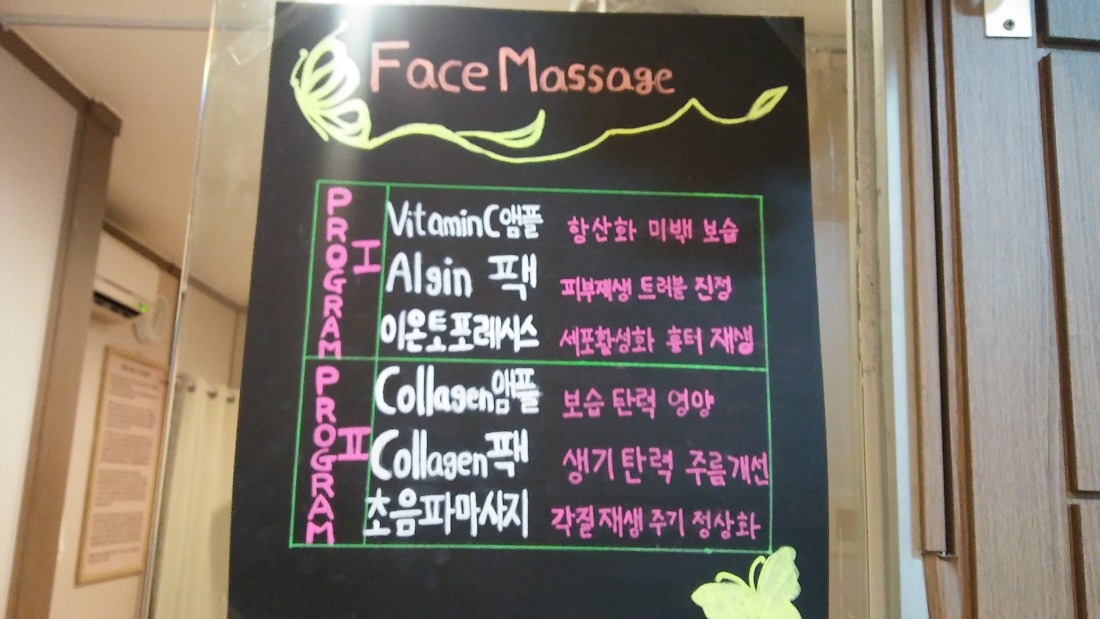 Face Massage
PROGRAM I
Vitamin C 앰플 항산화 미백 보습
Algin 팩 피부재생 트러블 진정
이온토포레시스 세포활성화 흉터 재생
PROGRAM II
Collagen 앰플 보습 탄력 영양
Collagen 팩 생기 탄력 주름개선
초음파마사지 각질재생주기 정상화